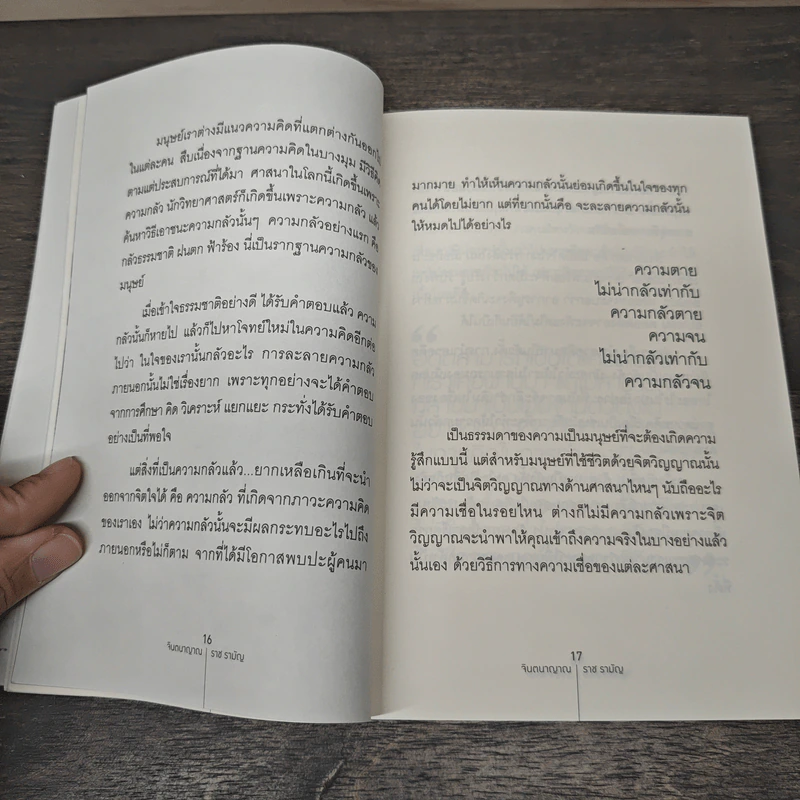 มนุษย์เราต่างมีแนวความคิดที่แตกต่างกันออกไป
ในแต่ละคน สืบเนื่องจากฐานความคิดในบางมุม มีวิธีคิด
ตามแต่ประสบการณ์ที่ได้มา ศาสนาในโลกนี้เกิดขึ้นเพราะ
ความกลัว นักวิทยาศาสตร์ก็เกิดขึ้นเพราะความกลัว แล้ว
ค้นหาวิธีเอาชนะความกลัวนั้นๆ ความกลัวอย่างแรก คือ
กลัวธรรมชาติ ฝนตก ฟ้าร้อง นี่เป็นรากฐานความกลัวของ
มนุษย์
เมื่อเข้าใจธรรมชาติอย่างดี ได้รับคำตอบแล้ว ความ
กลัวนั้นก็หายไป แล้วก็ไปหาโจทย์ใหม่ในความคิดอีกต่อ
ไปว่า ในใจของเรานั้นกลัวอะไร การละลายความกลัว
ภายนอกนั้นไม่ใช่เรื่องยาก เพราะทุกอย่างจะได้คำตอบ
จากการศึกษา คิด วิเคราะห์ แยกแยะ กระทั่งได้รับคำตอบ
อย่างเป็นที่พอใจ
แต่สิ่งที่เป็นความกลัวแล้ว...ยากเหลือเกินที่จะนำ
ออกจากจิตใจได้ คือ ความกลัว ที่เกิดจากภาวะความคิด
ของเราเอง ไม่ว่าความกลัวนั้นจะมีผลกระทบอะไรไปถึง
ภายนอกหรือไม่ก็ตาม จากที่ได้มีโอกาสพบปะผู้คนมา
16
จินตนาญาณ | ราช รามัญ
มากมาย ทำให้เห็นความกลัวนั้นย่อมเกิดขึ้นในใจของทุก
คนได้โดยไม่ยาก แต่ที่ยากนั้นคือ จะละลายความกลัวนั้น
ให้หมดไปได้อย่างไร
ความตาย
ไม่น่ากลัวเท่ากับ
ความกลัวตาย
ความจน
ไม่น่ากลัวเท่ากับ
ความกลัวจน
เป็นธรรมดาของความเป็นมนุษย์ที่จะต้องเกิดความ
รู้สึกแบบนี้ แต่สำหรับมนุษย์ที่ใช้ชีวิตด้วยจิตวิญญาณนั้น
ไม่ว่าจะเป็นจิตวิญญาณทางด้านศาสนาไหนๆ นับถืออะไร
มีความเชื่อในรอยไหน ต่างก็ไม่มีความกลัวเพราะจิต
วิญญาณจะนำพาให้คุณเข้าถึงความจริงในบางอย่างแล้ว
นั้นเอง ด้วยวิธีการทางความเชื่อของแต่ละศาสนา
17
จินตนาญาณ | ราช รามัญ